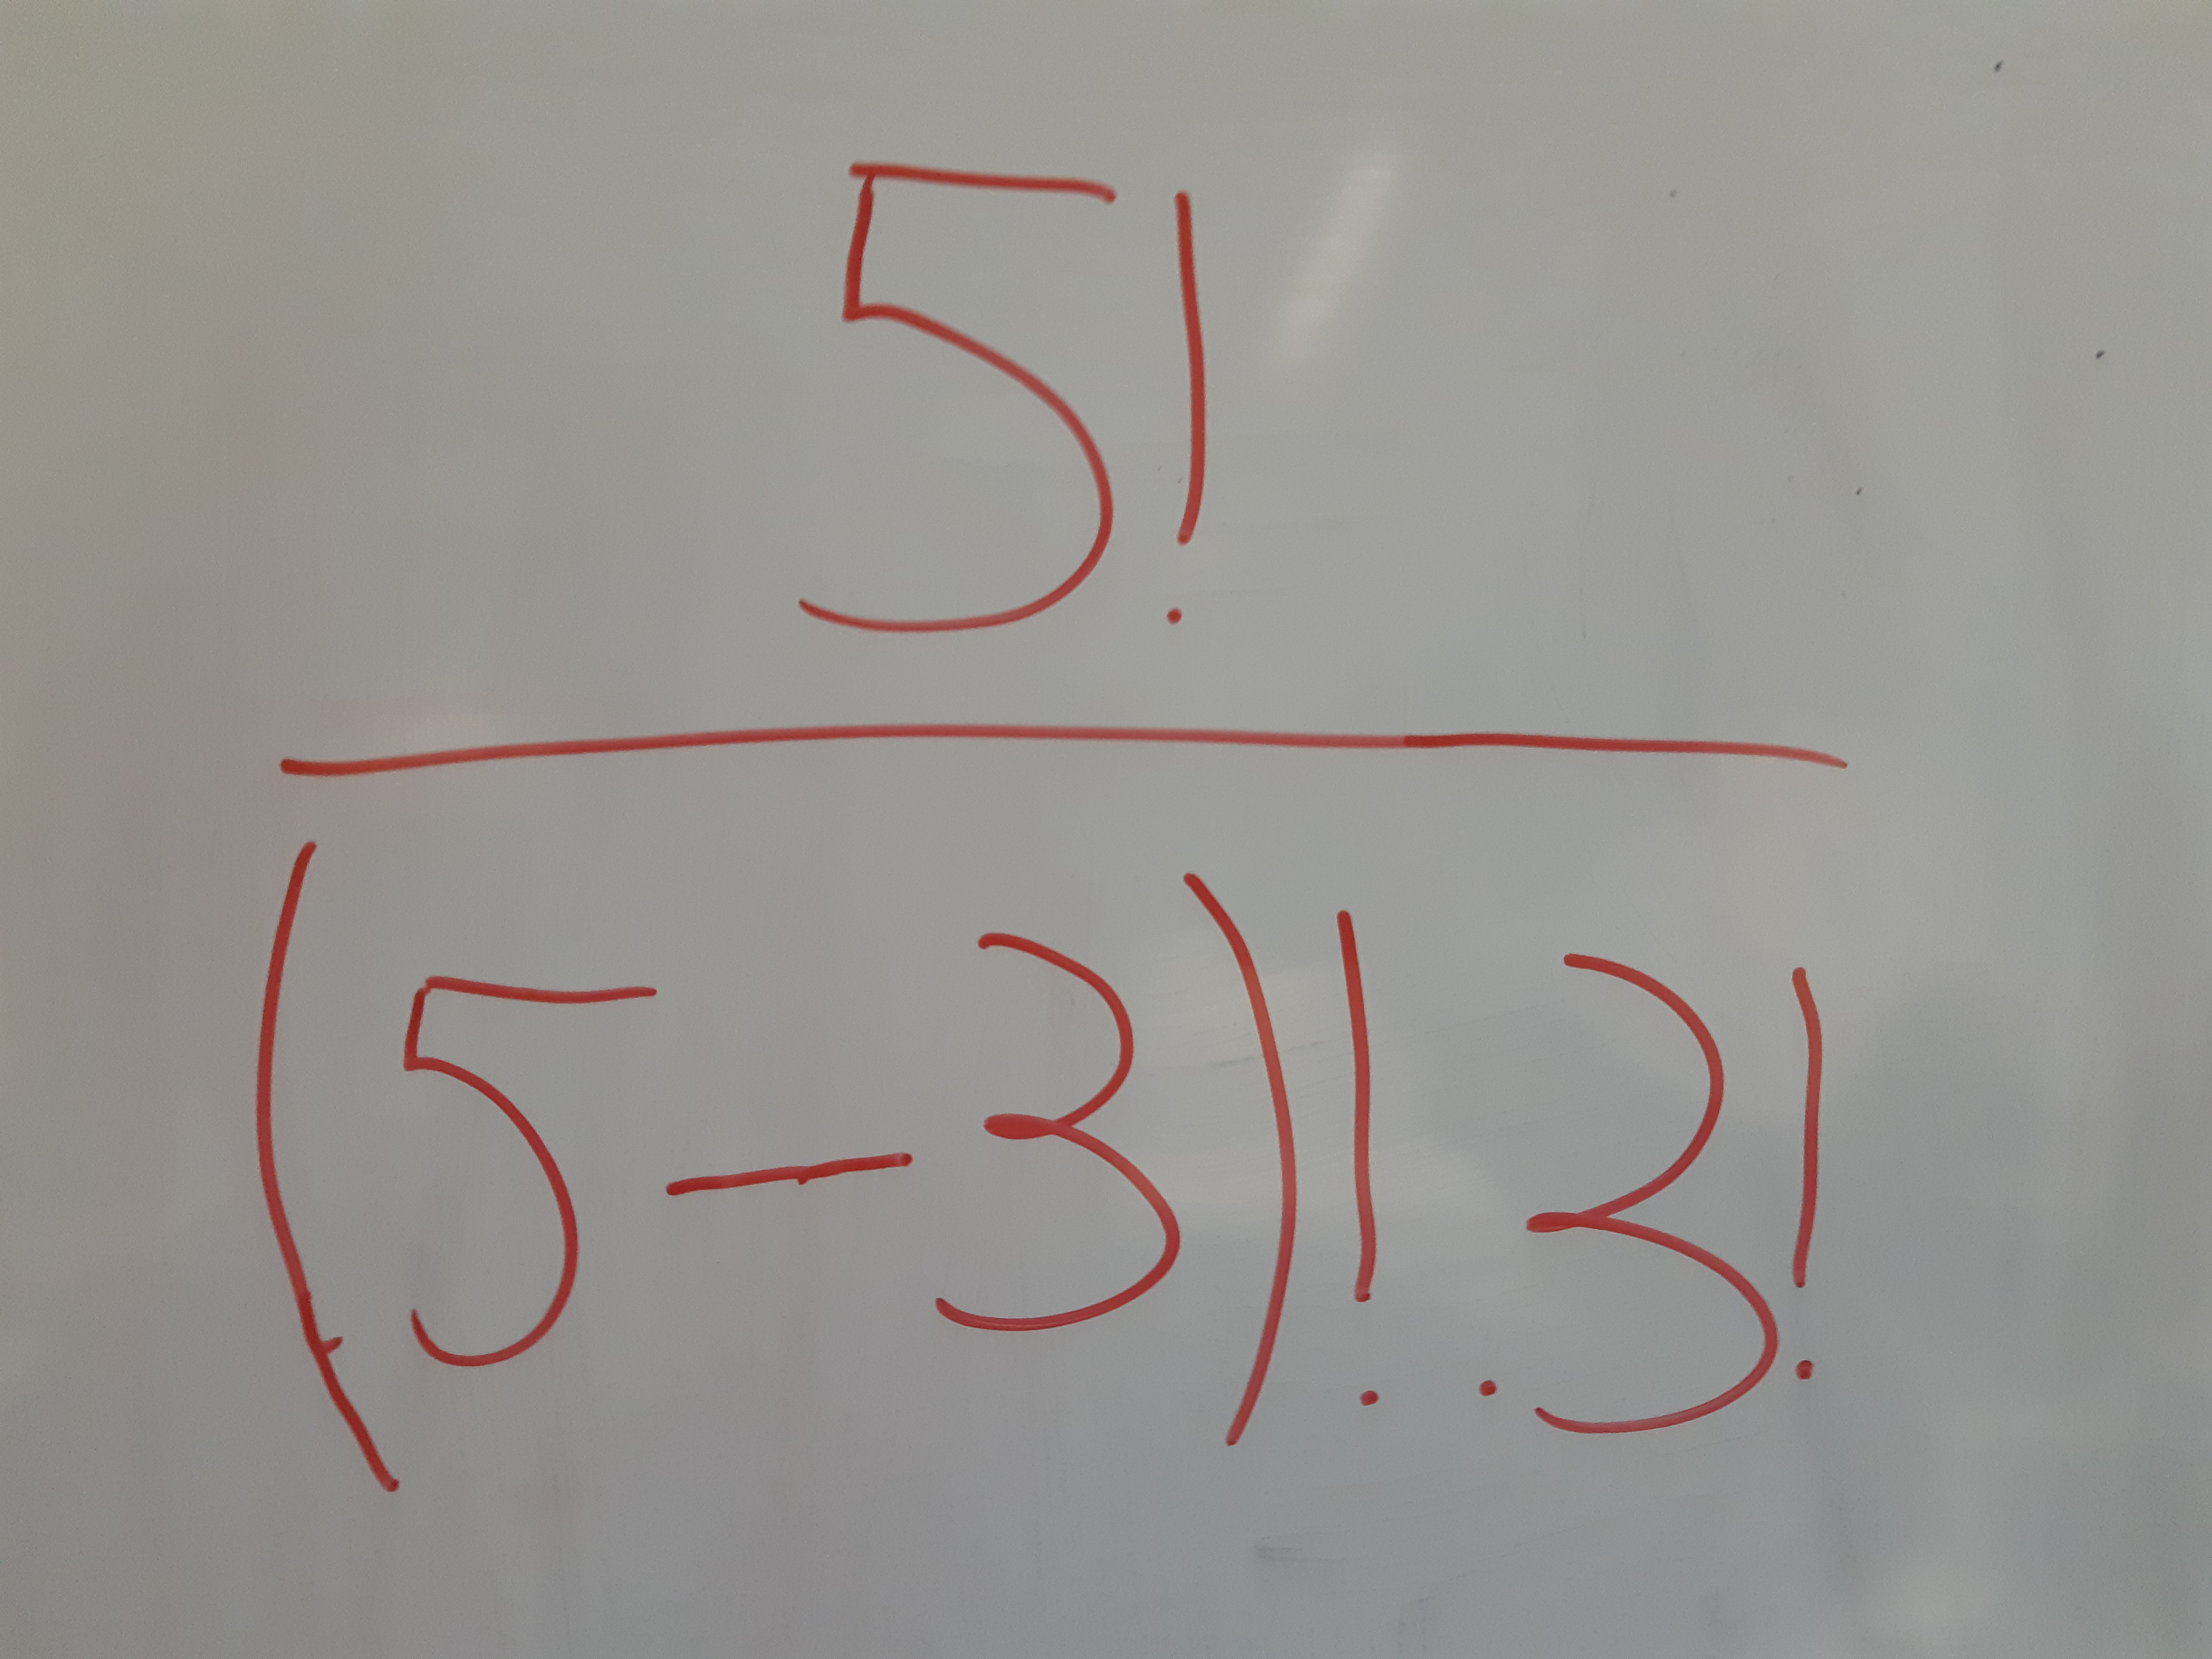 5!
(5-3)!.3!